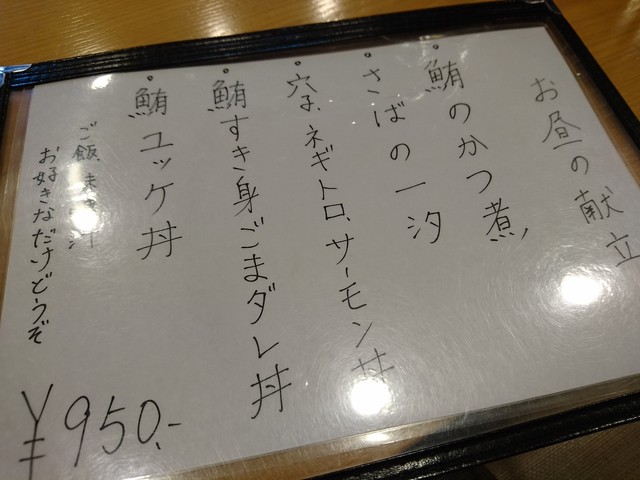 お昼の献立
・鮪のかつ煮
・さばの一汐
・穴子、ネギトロ、サーモン丼
・鮪すき身ごまダレ丼
・鮪ユッケ丼
ご飯、汁
お好きなだけどうぞ
¥950.-